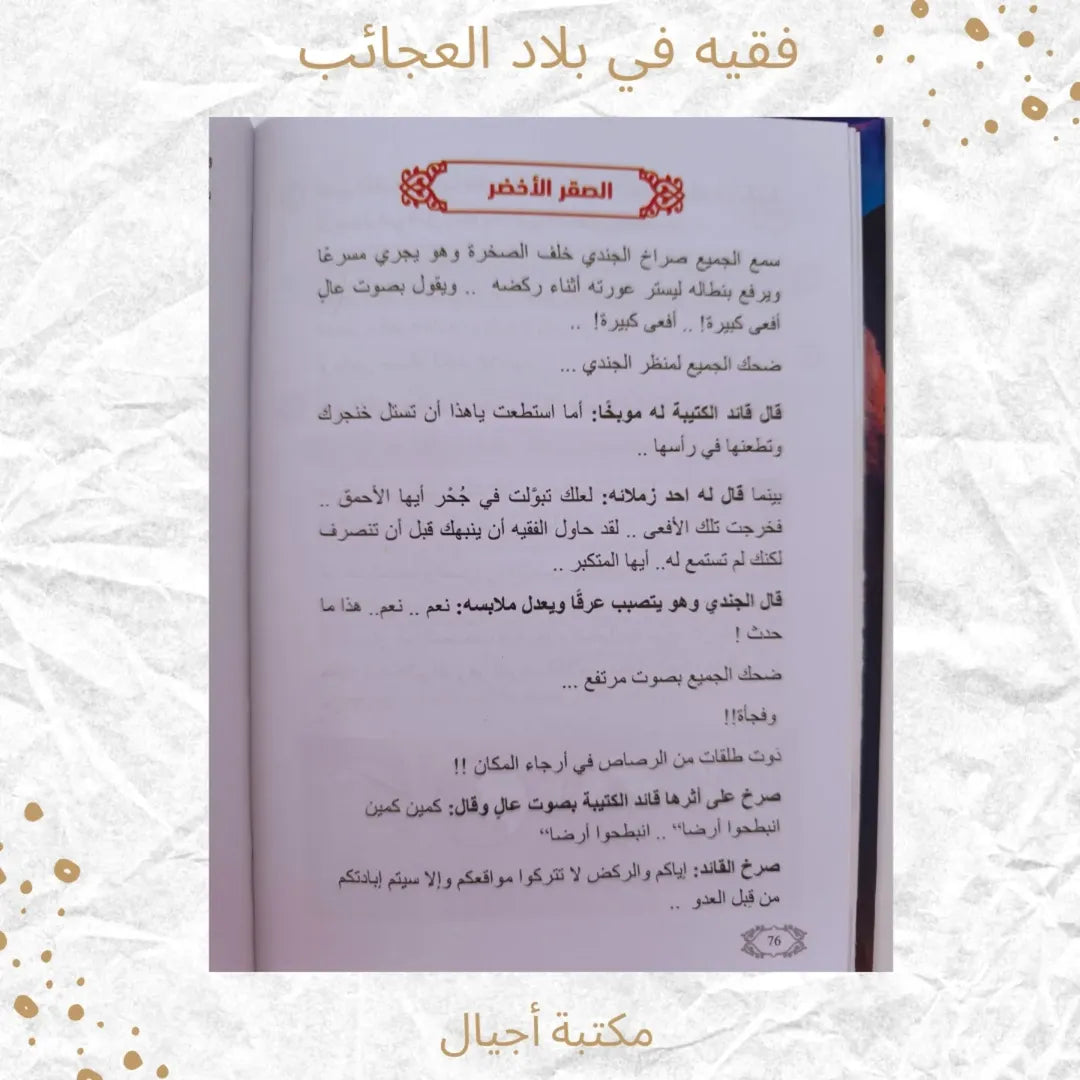 فقيه في بلاد العجائب
الصقر الأخضر
سمع الجميع صراخ الجندي خلف الصخرة وهو يجري مسرعًا
ويرفع بنطاله ليستر عورته أثناء ركضه .. ويقول بصوت عالٍ
أفعى كبيرة! .. أفعى كبيرة! ..
ضحك الجميع لمنظر الجندي ...
قال قائد الكتيبة له موبخًا: أما استطعت ياهذا أن تستل خنجرك
وتطعنها في رأسها ..
بينما قال له احد زملائه: لعلك تبوَّلت في جُحْر أيها الأحمق ..
فخرجت تلك الأفعى .. لقد حاول الفقيه أن ينبهك قبل أن تنصرف
لكنك لم تستمع له.. أيها المتكبر ..
قال الجندي وهو يتصبب عرقًا ويعدل ملابسه: نعم .. نعم.. هذا ما
حدث !
ضحك الجميع بصوت مرتفع ...
وفجأة!!
دَوت طلقات من الرصاص في أرجاء المكان !!
صرخ على أثرها قائد الكتيبة بصوت عالٍ وقال: كمين كمين
انبطحوا أرضا“ .. انبطحوا أرضا“
صرخ القائد: إياكم والركض لا تتركوا مواقعكم وإلا سيتم إبادتكم
من قِبل العدو ..
76
مكتبة أجيال